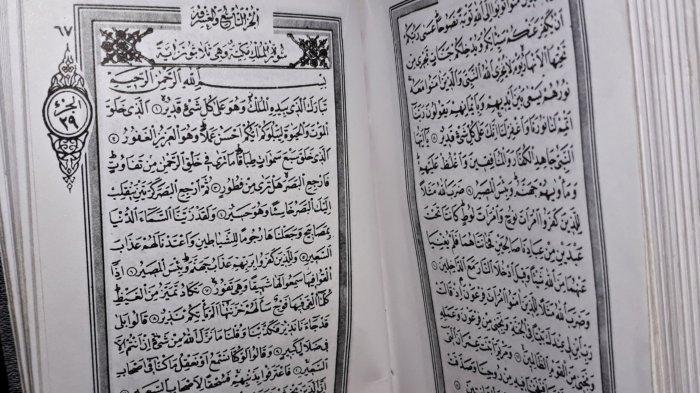 اٰمَنُوا تُوبُوا اِلَى اللّٰهِ تَوْبَةً نَصُوحًا عَسٰى رَبُّكُمْ
اَنْ يُكَفِّرَ عَنْكُمْ سَيِّـَٔاتِكُمْ وَيُدْخِلَكُمْ جَنَّاتٍ تَجْرِى مِنْ
تَحْتِهَا الْاَنْهَارُ يَوْمَ لَا يُخْزِى اللّٰهُ النَّبِىَّ وَالَّذِينَ اٰمَنُوا مَعَهُ
نُورُهُمْ يَسْعٰى بَيْنَ اَيْدِيهِمْ وَبِاَيْمَانِهِمْ يَقُولُونَ رَبَّنَا
اَتْمِمْ لَنَا نُورَنَا وَاغْفِرْ لَنَا اِنَّكَ عَلٰى كُلِّ شَىْءٍ قَدِيرٌ ٨ يَا اَيُّهَا
النَّبِىُّ جَاهِدِ الْكُفَّارَ وَالْمُنَافِقِينَ وَاغْلُظْ عَلَيْهِمْ
وَمَأْوٰيهُمْ جَهَنَّمُ وَبِئْسَ الْمَصِيرُ ٩ ضَرَبَ اللّٰهُ مَثَلًا
لِلَّذِينَ كَفَرُوا امْرَاَتَ نُوحٍ وَامْرَاَتَ لُوطٍ كَانَتَا تَحْتَ
عَبْدَيْنِ مِنْ عِبَادِنَا صَالِحَيْنِ فَخَانَتَاهُمَا فَلَمْ يُغْنِيَا
عَنْهُمَا مِنَ اللّٰهِ شَيْـًٔا وَقِيلَ ادْخُلَا النَّارَ مَعَ الدَّاخِلِينَ
وَضَرَبَ اللّٰهُ مَثَلًا لِلَّذِينَ اٰمَنُوا امْرَاَتَ فِرْعَوْنَ اِذْ قَالَتْ
رَبِّ ابْنِ لِى عِنْدَكَ بَيْتًا فِى الْجَنَّةِ وَنَجِّنِى مِنْ فِرْعَوْنَ وَعَمَلِهِ
وَنَجِّنِى مِنَ الْقَوْمِ الظَّالِمِينَ وَمَرْيَمَ ابْنَتَ عِمْرٰنَ الَّتِى
اَحْصَنَتْ فَرْجَهَا فَنَفَخْنَا فِيهِ مِنْ رُوحِنَا وَصَدَّقَتْ
٦٧
الجزء التاسع والعشر
الجزء
٢٩
سورة الملك مكية وهى ثلاثون اية
بِسْمِ اللّٰهِ الرَّحْمٰنِ الرَّحِيمِ
تَبَارَكَ الَّذِى بِيَدِهِ الْمُلْكُ وَهُوَ عَلٰى كُلِّ شَىْءٍ قَدِيرٌ ١ الَّذِى خَلَقَ
الْمَوْتَ وَالْحَيٰوةَ لِيَبْلُوَكُمْ اَيُّكُمْ اَحْسَنُ عَمَلًا وَهُوَ الْعَزِيزُ الْغَفُورُ ٢
الَّذِى خَلَقَ سَبْعَ سَمٰوَاتٍ طِبَاقًا مَا تَرٰى فِى خَلْقِ الرَّحْمٰنِ مِنْ تَفَاوُتٍ
فَارْجِعِ الْبَصَرَ هَلْ تَرٰى مِنْ فُطُورٍ ٣ ثُمَّ ارْجِعِ الْبَصَرَ كَرَّتَيْنِ يَنْقَلِبْ
اِلَيْكَ الْبَصَرُ خَاسِئًا وَهُوَ حَسِيرٌ ٤ وَلَقَدْ زَيَّنَّا السَّمَاءَ الدُّنْيَا
بِمَصَابِيحَ وَجَعَلْنَاهَا رُجُومًا لِلشَّيَاطِينِ وَاَعْتَدْنَا لَهُمْ عَذَابَ
السَّعِيرِ ٥ وَلِلَّذِينَ كَفَرُوا بِرَبِّهِمْ عَذَابُ جَهَنَّمَ وَبِئْسَ الْمَصِيرُ ٦ اِذَا
اُلْقُوا فِيهَا سَمِعُوا لَهَا شَهِيقًا وَهِىَ تَفُورُ ٧ تَكَادُ تَمَيَّزُ مِنَ الْغَيْظِ
كُلَّمَا اُلْقِىَ فِيهَا فَوْجٌ سَاَلَهُمْ خَزَنَتُهَا اَلَمْ يَأْتِكُمْ نَذِيرٌ ٨ قَالُوا بَلٰى
قَدْ جَاءَنَا نَذِيرٌ فَكَذَّبْنَا وَقُلْنَا مَا نَزَّلَ اللّٰهُ مِنْ شَىْءٍ اِنْ اَنْتُمْ اِلَّا
فِى ضَلَالٍ كَبِيرٍ ٩ وَقَالُوا لَوْ كُنَّا نَسْمَعُ اَوْ نَعْقِلُ مَا كُنَّا فِى اَصْحَابِ
السَّعِيرِ ١٠ فَاعْتَرَفُوا بِذَنْبِهِمْ فَسُحْقًا لِاَصْحَابِ السَّعِيرِ